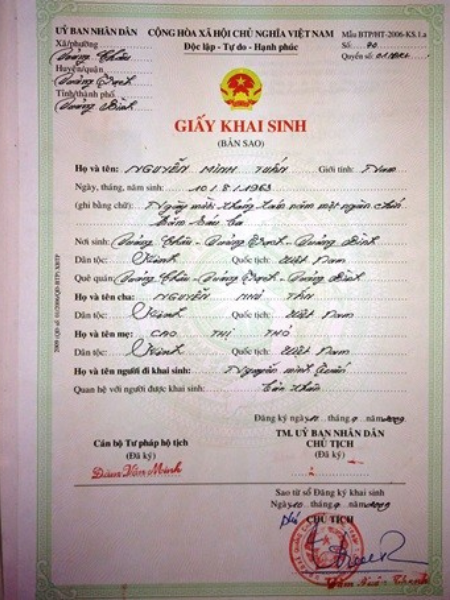 ỦY BAN NHÂN DÂN
CỘNG HÒA XÃ HỘI CHỦ NGHĨA VIỆT NAM
Mẫu BTP/HT-2006-KS.1.a
Xã/phường
Độc lập - Tự do - Hạnh phúc
Số: 70
Quảng Châu
Quyển số:
Huyện/quận
Quảng Trạch
Tỉnh/thành phố
Quảng Bình
GIẤY KHAI SINH
(BẢN SAO)
Họ và tên: NGUYỄN MINH TUẤN Giới tính: Nam
Ngày, tháng, năm sinh: 10/8/1963
(ghi bằng chữ): Ngày mười tháng tám năm một ngàn chín
trăm sáu ba
Nơi sinh: Quảng Châu - Quảng Trạch - Quảng Bình
Dân tộc: Kinh Quốc tịch: Việt Nam
Quê quán: Quảng Châu - Quảng Trạch - Quảng Bình
Họ và tên cha: NGUYỄN NHƯ TÂN
Dân tộc: Kinh Quốc tịch: Việt Nam
Họ và tên mẹ: CAO THỊ THỎ
Dân tộc: Kinh Quốc tịch: Việt Nam
Họ và tên người đi khai sinh: Nguyễn minh Tuấn
Quan hệ với người được khai sinh: bản thân
Đăng ký ngày tháng 9 năm 2009
Cán bộ Tư pháp hộ tịch
(Đã ký)
Đàm Văn Minh
TM. UỶ BAN NHÂN DÂN
CHỦ TỊCH
(Đã ký)
Sao từ sổ Đăng ký khai sinh
Ngày 10 tháng 9 năm 2009
Phó CHỦ TỊCH
Đàm Xuân Thanh